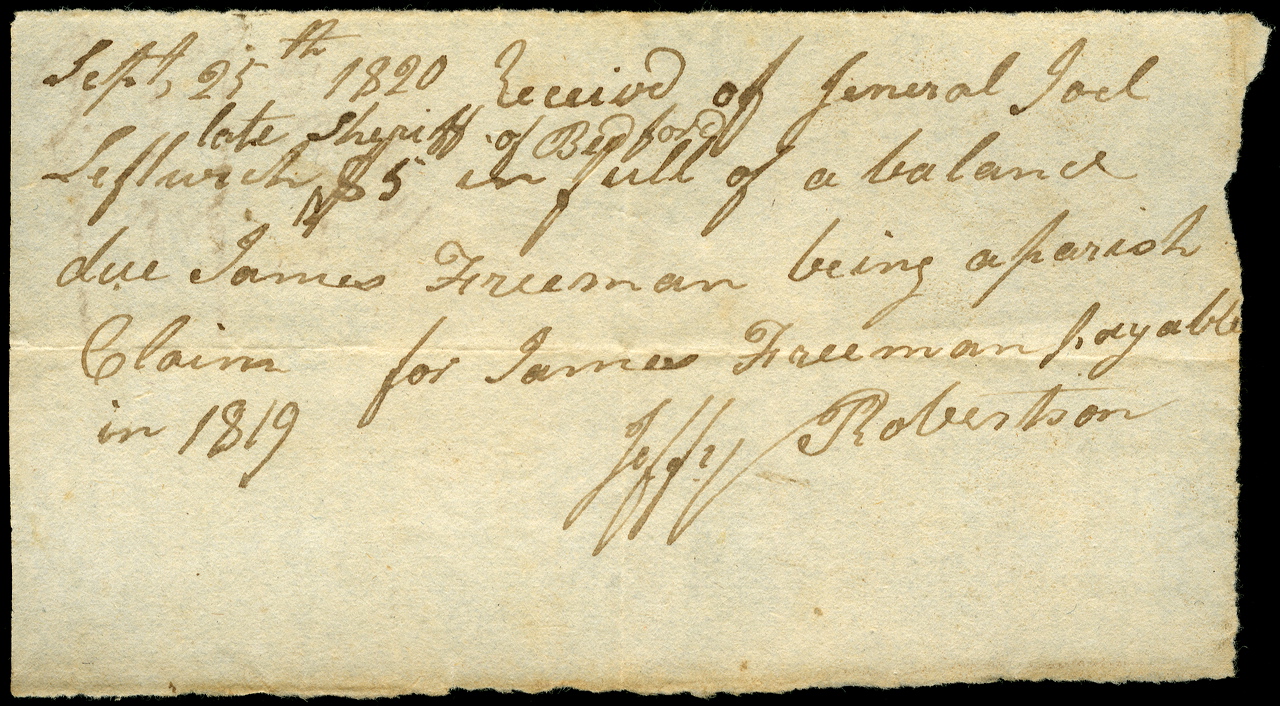 Sept, 25th 1820 Received of General Joel
late Sheriff of Bedford
Leftwich $5 in full of a balance
due James Freeman being a parish
Claim for James Freeman payable
in 1819 Jeffry Robertson